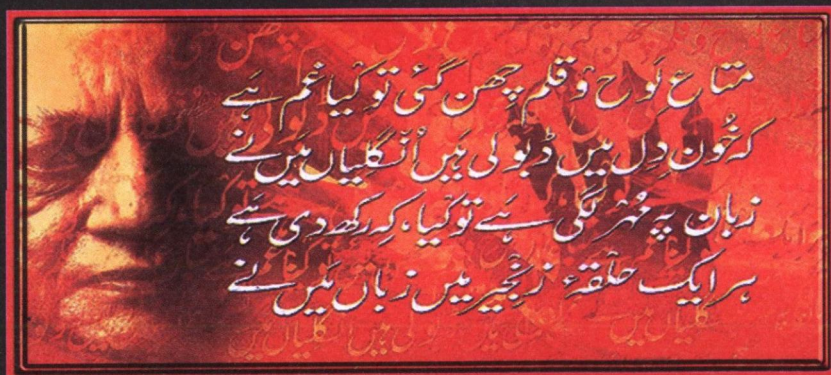 متاعِ لَوح و قلم چھن گئی تو کیا غم ہے
کہ خُونِ دِل میں ڈبو لی ہیں اُنگلیاں میں نے
زبان پہ مُہر لگی ہے تو کیا، کہ رکھ دی ہے
ہر ایک حلقۂ زنجیر میں زباں میں نے